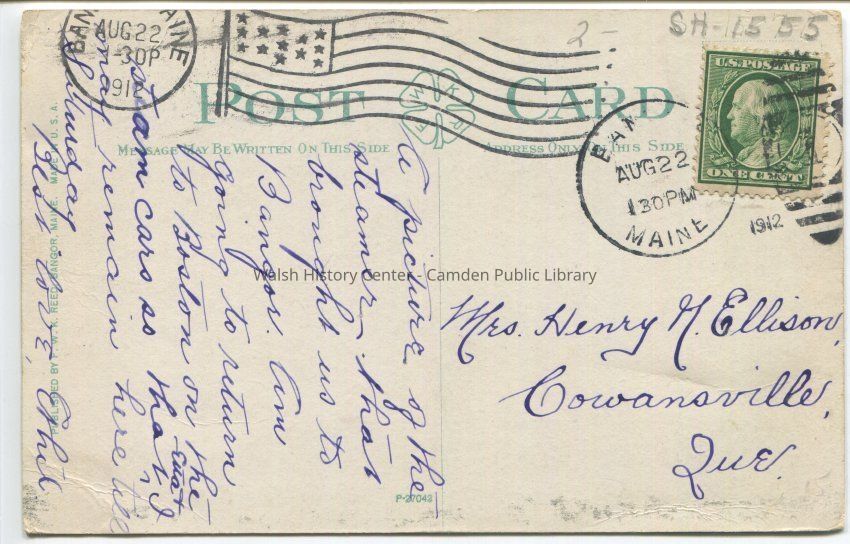 SH-1555
2-
BAN MAINE
AUG 22
1-30P
1912
POST CARD
F W K R
MESSAGE MAY BE WRITTEN ON THIS SIDE
ADDRESS ONLY ON THIS SIDE
U.S. POSTAGE
ONE CENT
BAN
AUG 22
130 PM
MAINE
1912
A picture of the
steamer that
brought us to
Bangor. Am
going to return
to Boston on the
steam cars so that I
may remain here till
Saturday
Best love,
Mrs. Henry N. Ellison,
Cowansville,
Que.
PUBLISHED BY F. W. K. REED, BANGOR, MAINE. MADE IN U.S.A.
P-27042
Walsh History Center - Camden Public Library